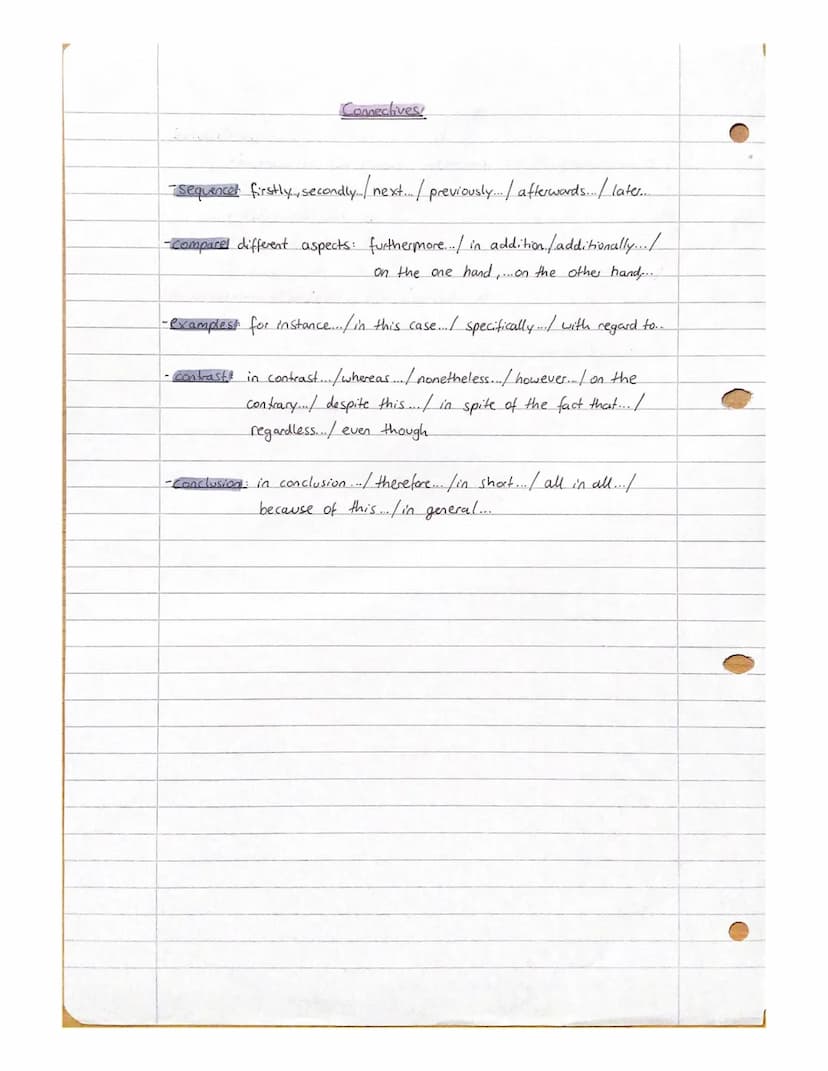 Connectives:
-sequence: firstly, secondly../ next.../ previously.../ afterwards.../ later...
-compare different aspects: furthermore.../ in addition/additionally.../
on the one hand,...on the other hand,...
-examples: for instance.../in this case.../ specifically.../ with regard to...
- contrast: in contrast.../whereas.../nonetheless.../ however.../ on the
contrary.../ despite this.../ in spite of the fact that.../
regardless.../ even though
-conclusion: in conclusion.../ therefore.../in short.../ all in all.../
because of this.../in general...